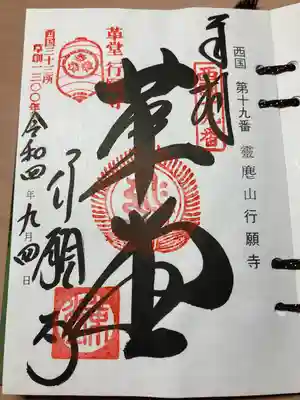 西国 第十九番 靈麀山行願寺
奉拝
西国十九番
革堂
革堂行願寺
行願寺
西国三十三所
草創一三〇〇年
令和四年九月四日